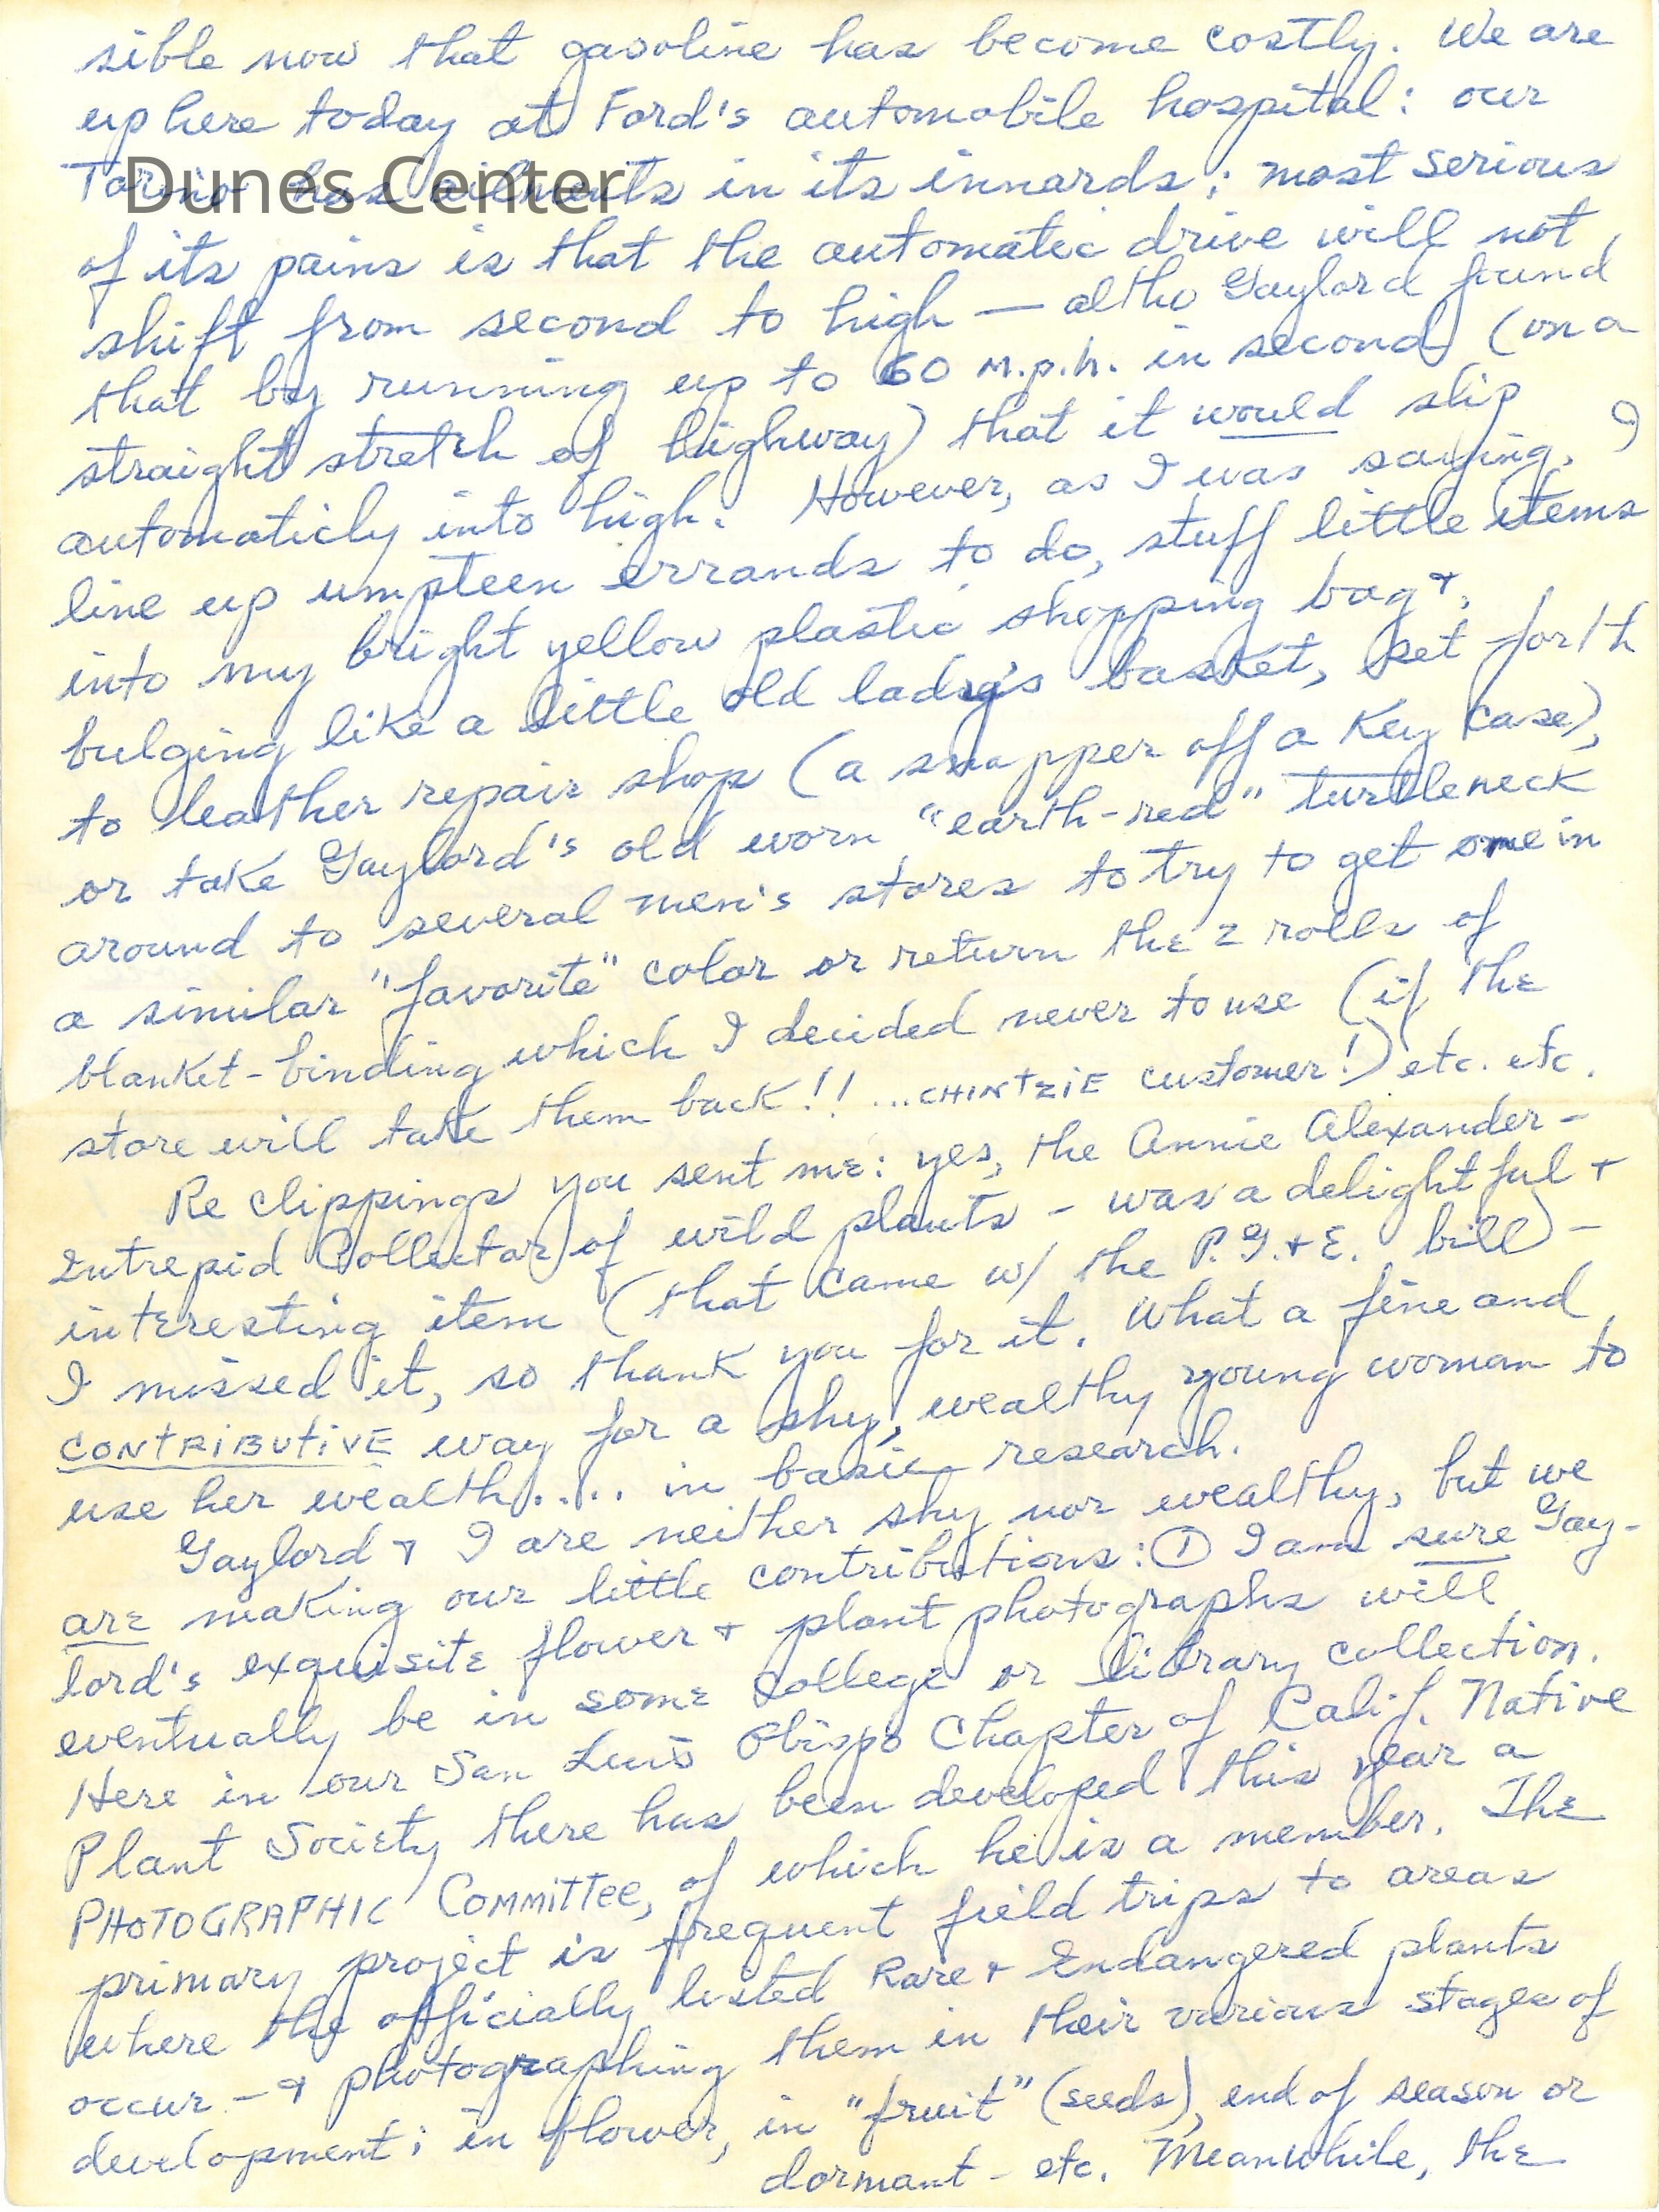 sible now that gasoline has become costly. We are
up here today at Ford's automobile hospital: our
Dunes Center
Torino has ailments in its innards; most serious
of its pains is that the automatic drive will not
shift from second to high — altho Gaylord found
that by running up to 60 M.p.h. in second (on a
straight stretch of highway) that it would slip
automaticly into high. However, as I was saying, I
line up umpteen errands to do, stuff little items
into my bright yellow plastic shopping bag &,
bulging like a little old lady's basket, set forth
to leather repair shop (a snapper off a Key Case),
or take Gaylord's old worn "earth-red" turtleneck
around to several men's stores to try to get one in
a similar "favorite" color or return the 2 rolls of
blanket-binding which I decided never to use (if the
store will take them back!! ... CHINTZIE customer!) etc. etc.
Re clippings you sent me: yes, the Annie Alexander -
Intrepid Collector of wild plants - was a delightful &
interesting item (that came w/ the P.G.&E. bill) -
I missed it, so thank you for it. What a fine and
CONTRIBUTIVE way for a shy, wealthy young woman to
use her wealth..... in basic research.
Gaylord & I are neither shy nor wealthy, but we
are making our little contributions: ① I am sure Gay-
lord's exquisite flower & plant photographs will
eventually be in some college or library collection.
Here in our San Luis Obispo Chapter of Calif. Native
Plant Society there has been developed this year a
PHOTOGRAPHIC COMMITTEE, of which he is a member. The
primary project is frequent field trips to areas
where the officially listed Rare & Endangered plants
occur - & photographing them in their various stages of
development; in flower, in "fruit" (seeds), end of season or
dormant - etc. Meanwhile, the